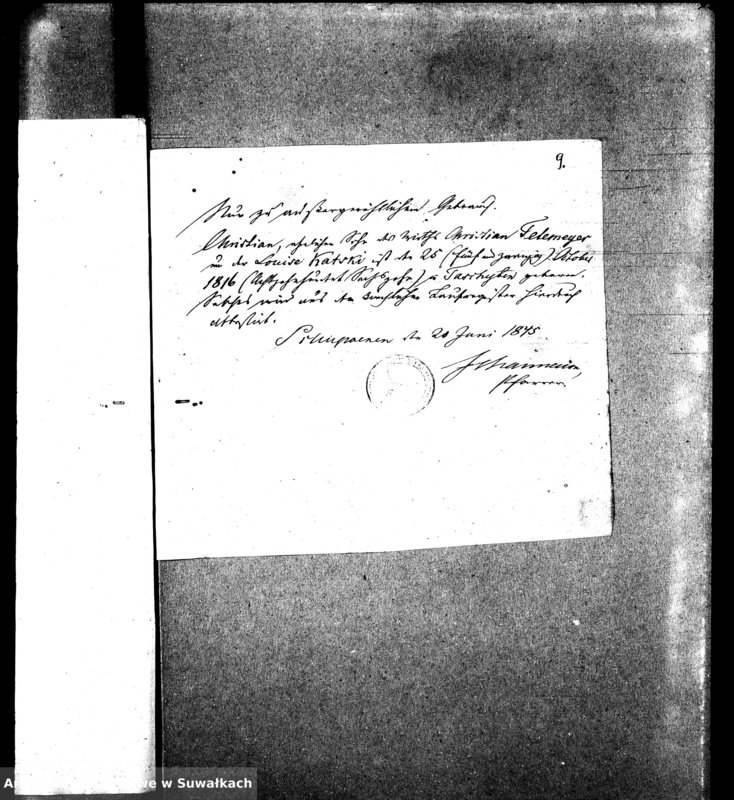 9.
Nur zu außergerichtlichen Gebrauch.
Christian, ehelicher Sohn des Wirths Christian Felemeyer
u der Louise Katski ist den 25 (fünf und zwanzig) October
1816 (Achtzehnhundert Sechszehn) zu geboren.
Solches wird aus dem Kirchlichen Taufregister hierdurch
attestirt.
den 20 Juni 1845.
Pfarrer
we w Suwałkach